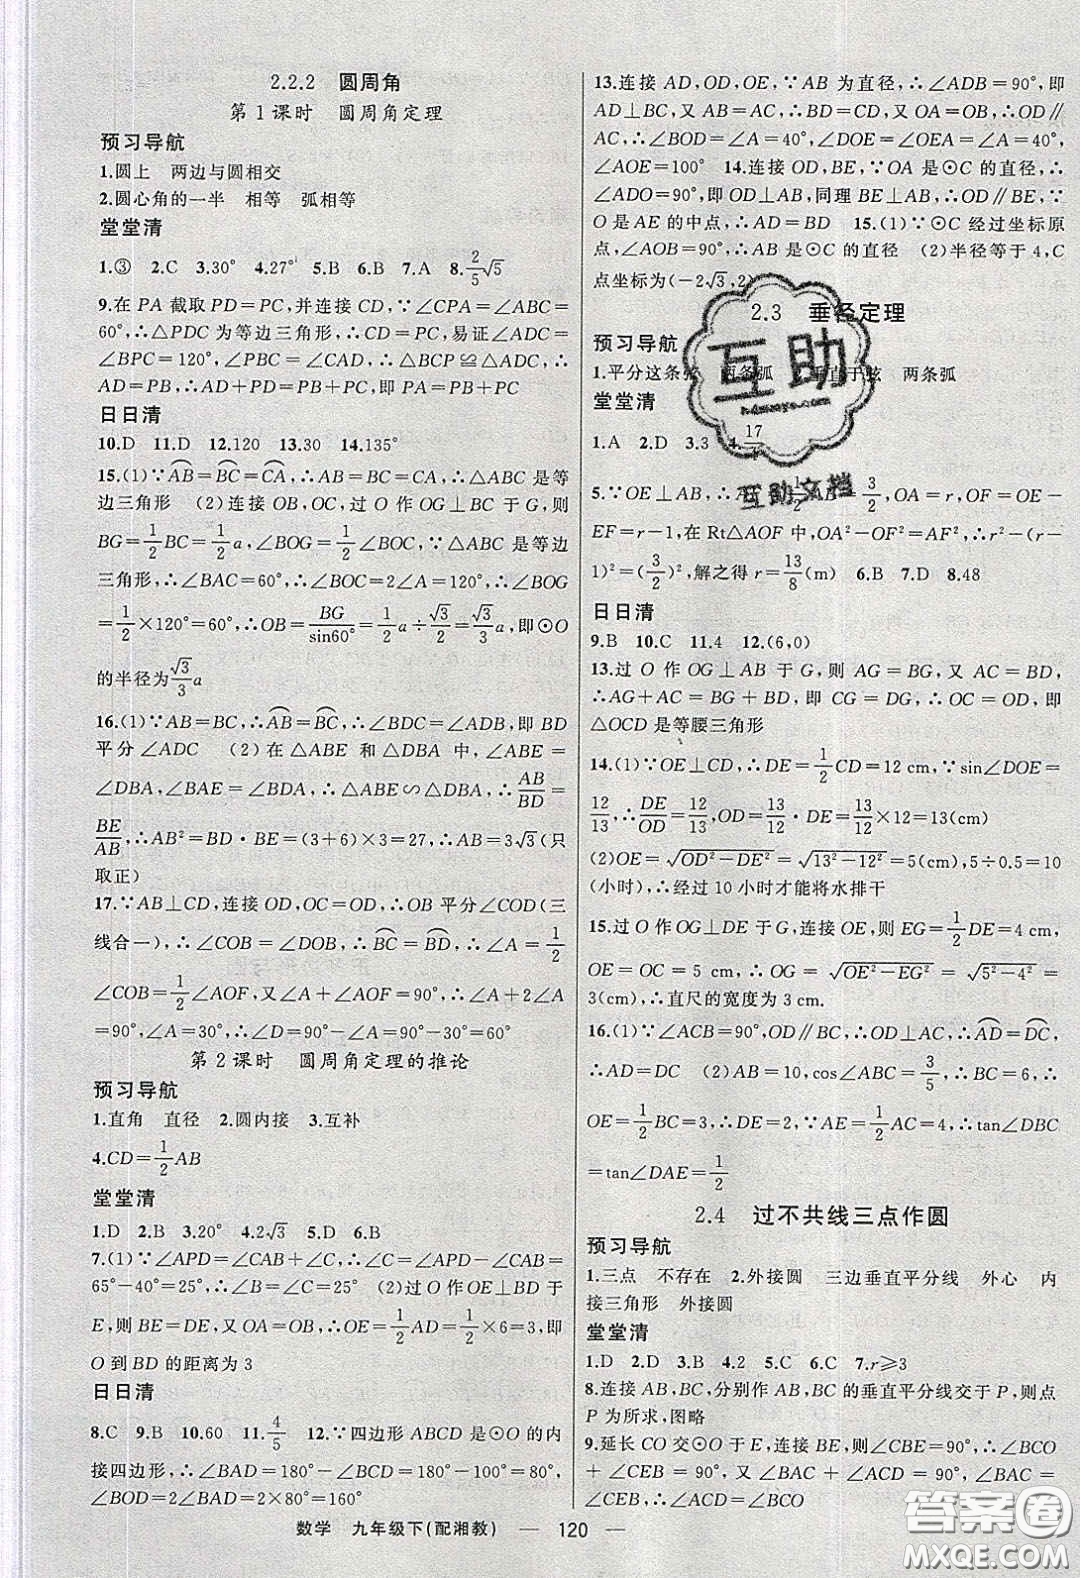 2.2.2 圆周角
第1课时 圆周角定理
预习导航
1.圆上 两边与圆相交
2.圆心角的一半 相等 弧相等
堂堂清
1.③ 2.C 3.30° 4.27° 5.B 6.B 7.A 8.2/5√5
9.在 PA 截取 PD=PC,并连接 CD,∵∠CPA=∠ABC=
60°,∴△PDC 为等边三角形,易证∠ADC=
∠BPC=120°,∠PBC=∠CAD,∴△BCP≌△ADC,∴
AD=PB,∴PA=PD+AD=PB+PC
日日清
10.D 11.D 12.120 13.30 14.135°
15.(1)∵⌒AB=⌒BC=⌒CA,∴AB=BC=CA,∴△ABC 是等
边三角形 (2)连接 OB,OC,过 O 作 OG⊥BC 于 G,则
BG=1/2BC=1/2a,∠BOG=1/2∠BOC,∵△ABC 是等边
三角形,∴∠BAC=60°,∴∠BOC=2∠A=120°,∴∠BOG
=1/2×120°=60°,∴OB=BG/sin60°=1/2a÷√3/2=√3/3a,即⊙O
的半径为√3/3a
16.(1)∵AB=BC,∴⌒AB=⌒BC,∴∠BDC=∠ADB,即 BD
平分∠ADC (2)在△ABE 和△DBA 中,∠BAE=
∠DBA,∠ABE=∠DBA,∴△ABE∽△DBA,∴AB/BD=
BE/AB,∴AB²=BD·BE=(3+6)×3=27,∴AB=3√3(只
取正)
17.∵AB⊥CD,连接 OD,OC=OD,∴OB 平分∠COD(三
线合一),∴∠COB=∠DOB,∴⌒BC=⌒BD,∴∠A=1/2
∠COB=1/2∠AOF,又∠A+∠AOF=90°,∴∠A+2∠A
=90°,∠A=30°,∴∠D=90°-∠A=90°-30°=60°
第2课时 圆周角定理的推论
预习导航
1.直角 直径 2.圆内接 3.互补
4.CD=1/2AB
堂堂清
1.D 2.B 3.20° 4.2√3 5.D 6.B
7.(1)∵∠APD=∠CAB+∠C,∴∠C=∠APD-∠CAB=
65°-40°=25°,∴∠B=∠C=25° (2)过 O 作 OE⊥BD 于
E,则 BE=DE,又 OA=OB,∴OE=1/2AD=1/2×6=3,即
O 到 BD 的距离为 3
日日清
8.C 9.B 10.60 11.4/5 12.∵四边形 ABCD 是⊙O 的内
接四边形,∴∠BAD=180°-∠BCD=180°-100°=80°,
∠BOD=2∠BAD=2×80°=160°
13.连接 AD,OD,OE,∵AB 为直径,∴∠ADB=90°,即
AD⊥BC,又 AB=AC,∴BD=CD,又 OA=OB,∴OD∥
AC,∴∠BOD=∠A=40°,∠DOE=∠OEA=∠A=40°,
∠AOE=100° 14.连接 OD,BE,∵OA 是⊙C 的直径,∴
∠ADO=90°,即 OD⊥AB,同理 BE⊥AB,∴OD∥BE,∵
O 是 AE 的中点,∴AD=BD 15.(1)∵⊙C 经过坐标原
点,∠AOB=90°,∴AB 是⊙C 的直径 (2)半径等于 4,C
点坐标为(-2√3,2)
2.3 垂径定理
预习导航
1.平分这条弦 两条弧 垂直于弦 两条弧
堂堂清
1.A 2.D 3.3 4.17
5.∵OE⊥AB,∴ 1/2 3/2,OA=r,OF=OE-
EF=r-1,在 Rt△AOF 中,OA²-OF²=AF²,∴r²-(r-
1)²=(3/2)²,解之得 r=13/8(m) 6.B 7.D 8.48
日日清
9.B 10.C 11.4 12.(6,0)
13.过 O 作 OG⊥AB 于 G,则 AG=BG,又 AC=BD,
∴AG+AC=BG+BD,即 CG=DG,∴OC=OD,即
△OCD是等腰三角形
14.(1)∵OE⊥CD,∴DE=1/2CD=12 cm,∵sin∠DOE=
12/13,∴DE/OD=12/13,OD=13/12·DE=13/12×12=13(cm)
(2)OE=√(OD²-DE²)=√(13²-12²)=5(cm),5÷0.5=10
(小时),∴经过 10 小时才能将水排干
15.过 O 作OG⊥DE 于 G,连接 OE,则 EG=1/2DE=4 cm,
OE=OC=5 cm,∴OG=√(OE²-EG²)=√(5²-4²)=
3(cm),∴直尺的宽度为 3 cm.
16.(1)∵∠ACB=90°,OD∥BC,∴OD⊥AC,∴⌒AD=⌒DC,
∴AD=DC (2)AB=10,cos∠ABC=3/5,∴BC=6,∴
OE=1/2BC=3,∴DE=2,∵AE=1/2AC=4,∴tan∠DBC
=tan∠DAE=1/2
2.4 过不共线三点作圆
预习导航
1.三点 不存在 2.外接圆 三边垂直平分线 外心 内
接三角形 外接圆
堂堂清
1.D 2.B 3.B 4.2 5.C 6.C 7.r≥3
8.连接 AB,BC,分别作 AB,BC 的垂直平分线交于 P,则点
P 为所求,图略
9.延长 CO 交⊙O 于 E,连接 BE,则∠CBE=90°,∠BCO
+∠CEB=90°,又∠BAC+∠ACD=90°,∠BAC=
∠CEB,∴∠BCO=
数学 九年级下(配湘教) — 120 —
互助
互助文档
答案圈
MXQE.COM